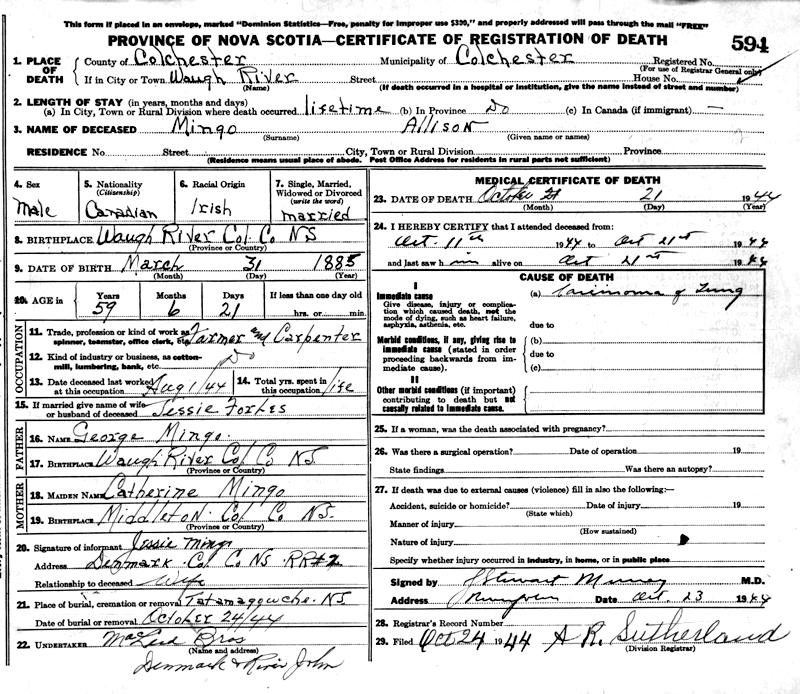 This form if placed in an envelope, marked "Dominion Statistics—Free, penalty for improper use $300," and properly addressed will pass through the mail "FREE"
PROVINCE OF NOVA SCOTIA—CERTIFICATE OF REGISTRATION OF DEATH 594
1. PLACE OF DEATH
County of Colchester Municipality of Colchester Registered No.
(For use of Registrar General only)
If in City or Town Waugh River Street House No.
(Name) (If death occurred in a hospital or institution, give the name instead of street and number)
2. LENGTH OF STAY (in years, months and days)
(a) In City, Town or Rural Division where death occurred lifetime (b) In Province Do (c) In Canada (if immigrant) —
3. NAME OF DECEASED Mingo Allison
(Surname) (Given name or names)
RESIDENCE No. Street City, Town or Rural Division Province
(Residence means usual place of abode. Post Office Address for residents in rural parts not sufficient)
4. Sex 5. Nationality 6. Racial Origin 7. Single, Married,
(Citizenship) Widowed or Divorced
(write the word)
Male Canadian Irish married
8. BIRTHPLACE Waugh River Col. Co NS
(Province or Country)
9. DATE OF BIRTH March 31 1885
(Month) (Day) (Year)
20. AGE in Years Months Days If less than one day old
59 6 21 hrs. or min.
OCCUPATION
11. Trade, profession or kind of work as spinner, teamster, office clerk, etc. Farmer and Carpenter
12. Kind of industry or business, as cotton-mill, lumbering, bank, etc. Do
13. Date deceased last worked at this occupation Aug 1/44 14. Total yrs. spent in this occupation life
15. If married give name of wife or husband of deceased Jessie Forbes
FATHER
16. NAME George Mingo
17. BIRTHPLACE Waugh River Col. Co NS.
(Province or Country)
MOTHER
18. MAIDEN NAME Catherine Mingo
19. BIRTHPLACE Middleton Col. Co NS.
(Province or Country)
20. Signature of informant Jessie Mingo
Address Denmark Col. Co NS RR#2
Relationship to deceased Wife
21. Place of burial, cremation or removal Tatamagouche. NS.
Date of burial or removal October 24/44
22. UNDERTAKER MacLeod Bros
(Name and address)
Denmark & River John
MEDICAL CERTIFICATE OF DEATH
23. DATE OF DEATH October 21 21 1944
(Month) (Day) (Year)
24. I HEREBY CERTIFY that I attended deceased from:
Oct. 11th 1944 to Oct 21st 1944
and last saw him alive on Oct 21st 1944
CAUSE OF DEATH
I
Immediate cause (a) Carcinoma of Lung
Give disease, injury or complication which caused death, not the mode of dying, such as heart failure, asphyxia, asthenia, etc.
due to
Morbid conditions, if any, giving rise to immediate cause (stated in order proceeding backwards from immediate cause).
(b)
due to
(c)
II
Other morbid conditions (if important) contributing to death but not causally related to immediate cause.
25. If a woman, was the death associated with pregnancy?
26. Was there a surgical operation? Date of operation 19
State findings Was there an autopsy?
27. If death was due to external causes (violence) fill in also the following:—
Accident, suicide or homicide? Date of injury 19
(State which)
Manner of injury
(How sustained)
Nature of injury
Specify whether injury occurred in industry, in home, or in public place
Signed by J Stewart Murray M.D.
Address Date Oct. 23 1944
28. Registrar's Record Number
29. Filed Oct 24 1944 A R. Sutherland
(Division Registrar)